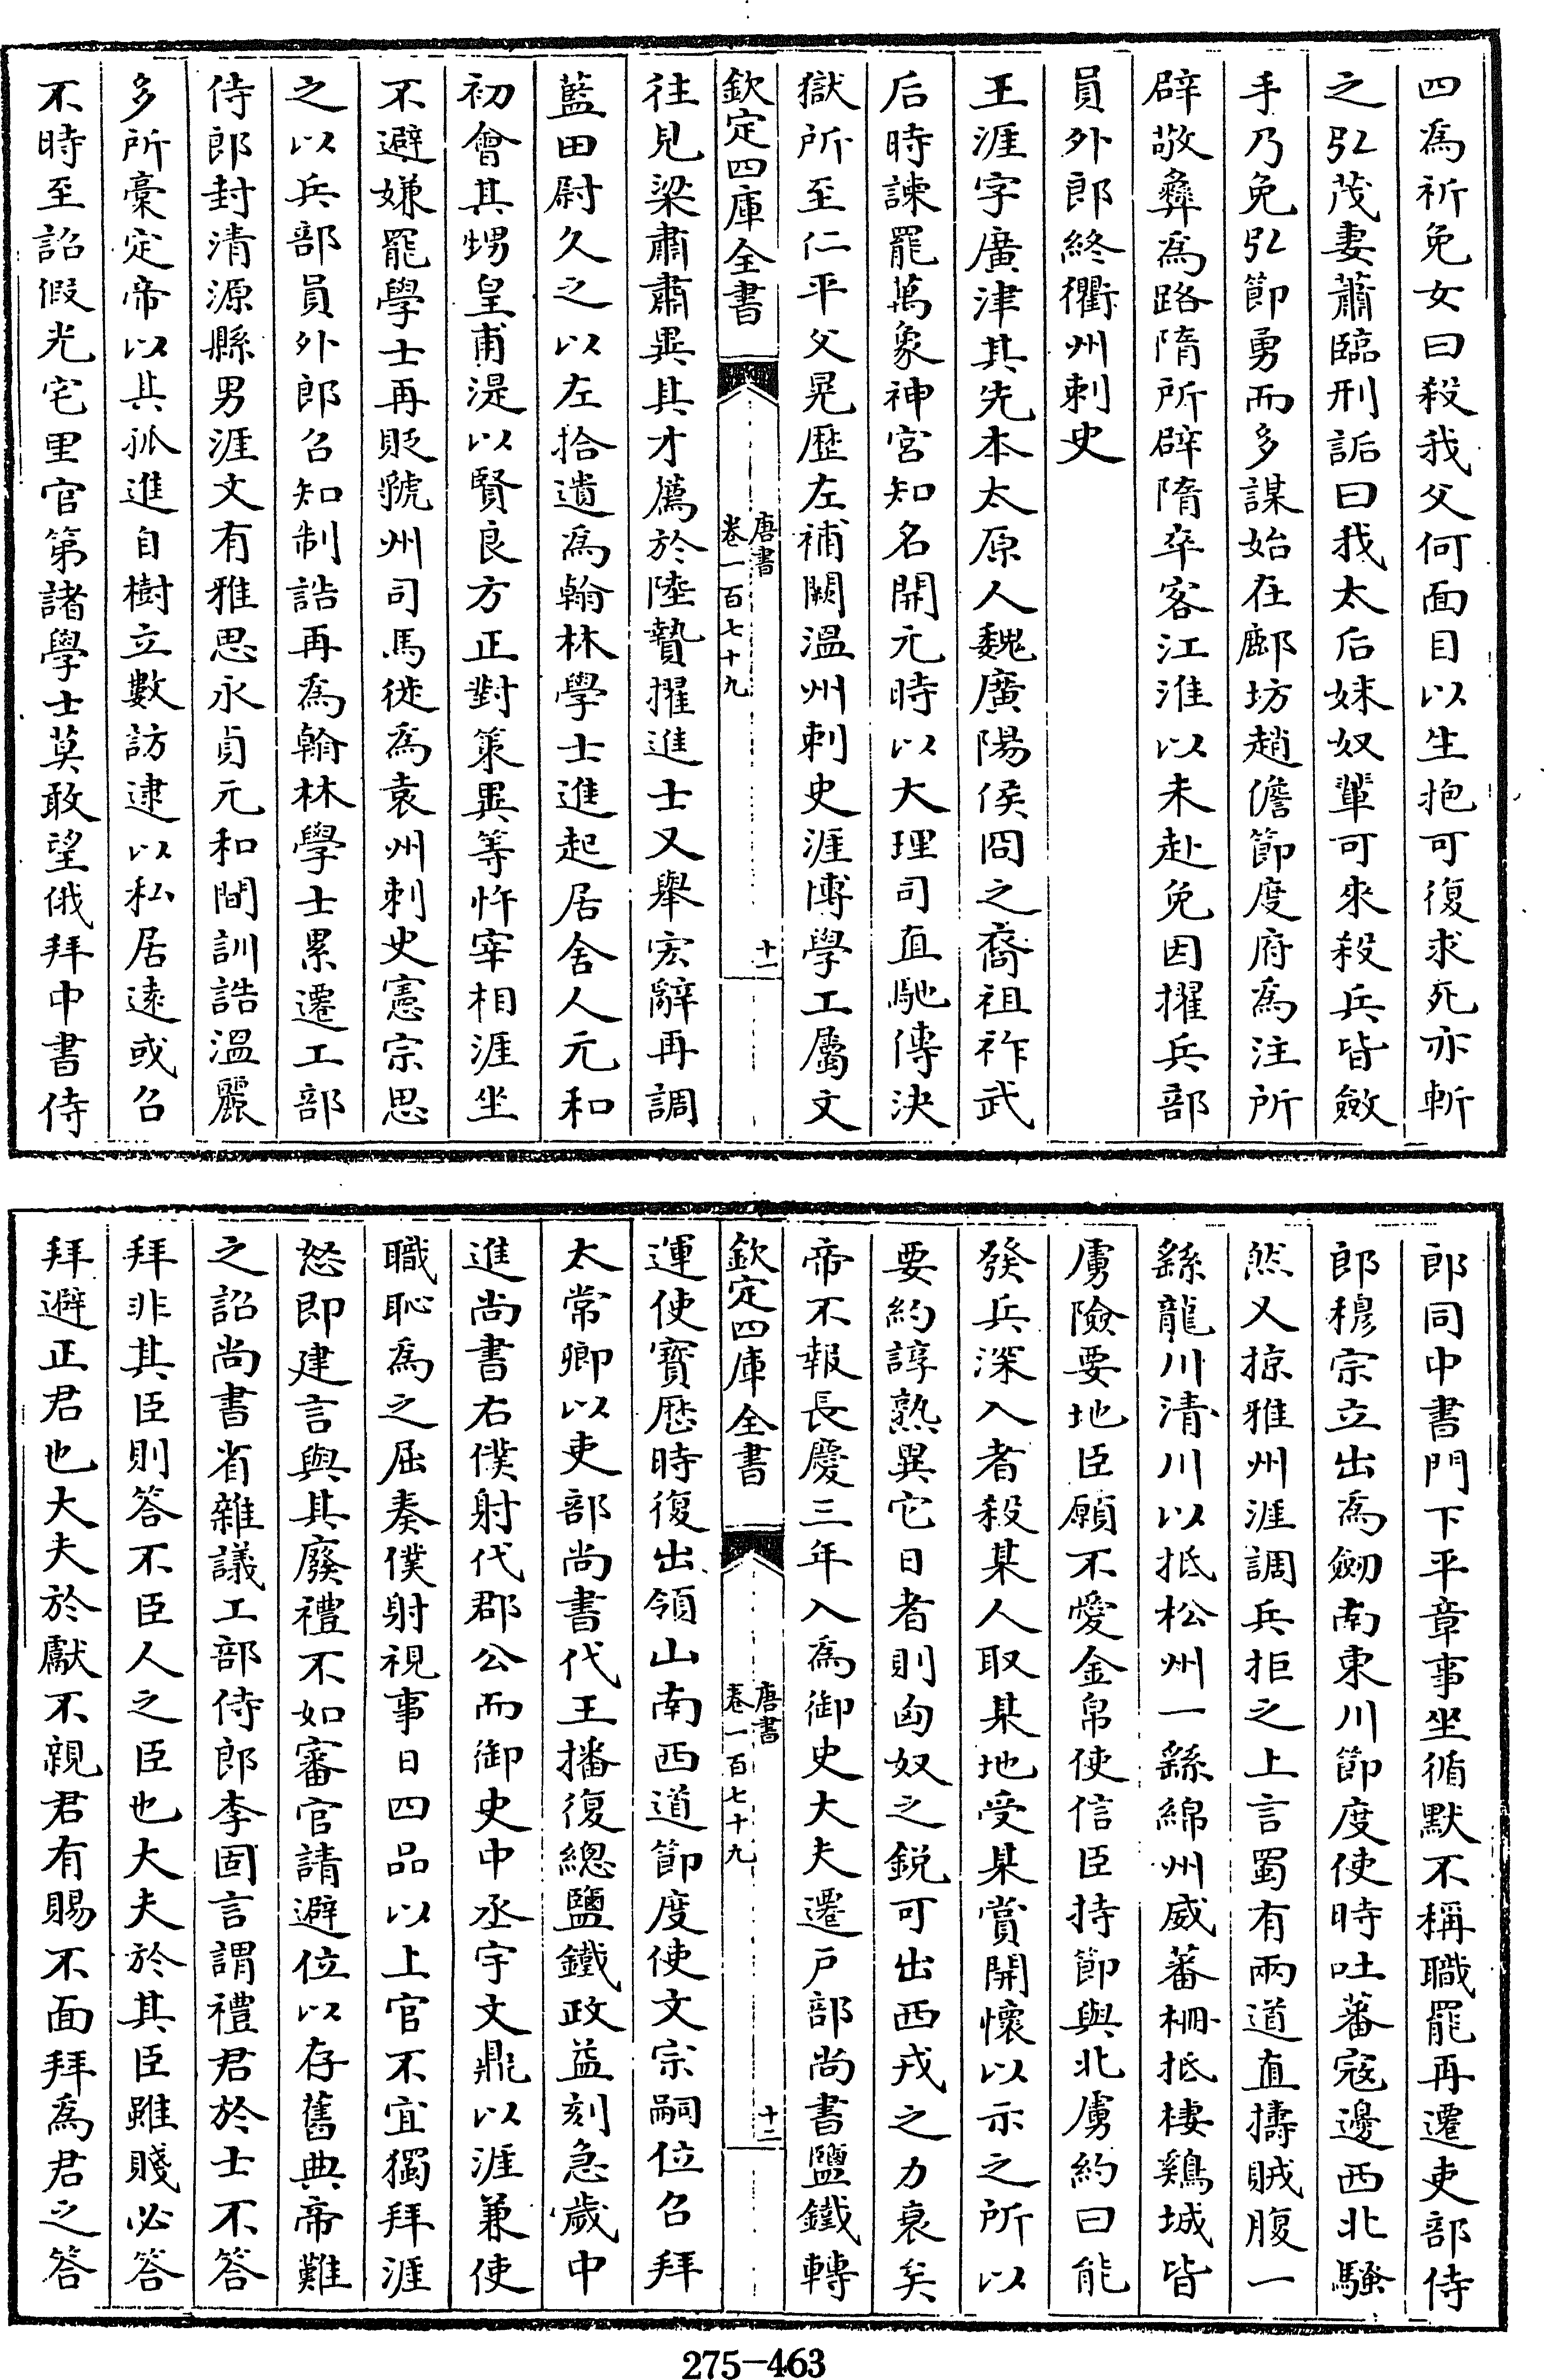 四爲祈免女曰殺我父何面目以生抱可復求死亦斬
之弘茂妻蕭臨刑詬曰我太后妹奴輩可來殺兵皆斂
手乃免弘節勇而多謀始在鄜坊趙儋節度府爲注所
辟敬彝爲路隋所辟隋卒客江淮以未赴免因擢兵部
員外郎終衢州刺史
王涯字廣津其先本太原人魏廣陽侯冏之裔祖祚武
后時諫罷萬象神宮知名開元時以大理司直馳傳決
獄所至仁平父晃歷左補闕溫州刺史涯博學工屬文
欽定四庫全書 唐書卷一百七十九 十一
往見梁肅肅異其才薦於陸贄擢進士又舉宏辭再調
藍田尉久之以左拾遺爲翰林學士進起居舍人元和
初會其甥皇甫湜以賢良方正對策異等忤宰相涯坐
不避嫌罷學士再貶虢州司馬徙爲袁州刺史憲宗思
之以兵部員外郎召知制誥再爲翰林學士累遷工部
侍郎封清源縣男涯文有雅思永貞元和間訓誥溫麗
多所稾定帝以其孤進自樹立數訪逮以私居遠或召
不時至詔假光宅里官第諸學士莫敢望俄拜中書侍
郎同中書門下平章事坐循默不稱職罷再遷吏部侍
郎穆宗立出爲劒南東川節度使時吐蕃寇邊西北騷
然又掠雅州涯調兵拒之上言蜀有兩道直擣賊腹一
繇龍川清川以抵松州一繇綿州威蕃柵抵棲鷄城皆
虜險要地臣願不愛金帛使信臣持節與北虜約曰能
發兵深入者殺某人取某地受某賞開懷以示之所以
要約諄熟異它日者則匈奴之銳可出西戎之力衰矣
帝不報長慶三年入爲御史大夫遷戶部尚書鹽鐵轉
欽定四庫全書 唐書卷一百七十九 十二
運使寶歷時復出領山南西道節度使文宗嗣位召拜
太常卿以吏部尚書代王播復總鹽鐵政益刻急歲中
進尚書右僕射代郡公而御史中丞宇文鼎以涯兼使
職恥爲之屈奏僕射視事日四品以上官不宜獨拜涯
怒即建言與其廢禮不如審官請避位以存舊典帝難
之詔尚書省雜議工部侍郎李固言謂禮君於士不答
拜非其臣則答不臣人之臣也大夫於其臣雖賤必答
拜避正君也大夫於獻不親君有賜不面拜爲君之答
275-463